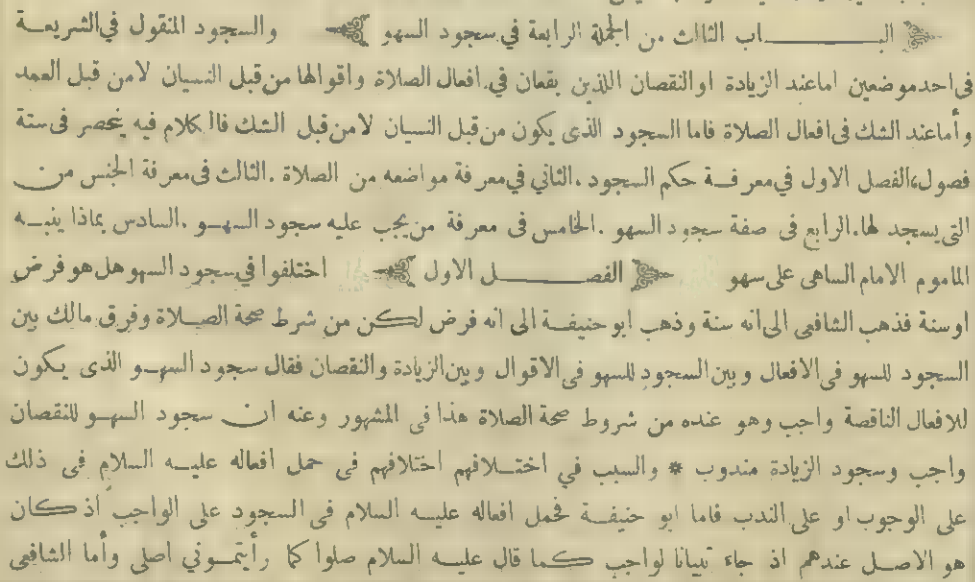 الباب الثالث من الجملة الرابعة في سجود السهو والسجود المنقول في الشريعة
في احد موضعين اما عند الزيادة او النقصان اللذين يقعان في افعال الصلاة واقوالها من قبل النسيان لا من قبل العمد
وأما عند الشك في افعال الصلاة فاما السجود الذى يكون من قبل النسيان لا من قبل الشك فالكلام فيه ينحصر فى ستة
فصول،الفصل الاول في معرفة حكم السجود .الثاني في معرفة مواضعه من الصلاة .الثالث فى معرفة الجنس من
التى يسجد لها.الرابع فى صفة سجود السهو .الخامس فى معرفة من يجب عليه سجود السهو .السادس بماذا ينبه
الماموم الامام الساهى على سهو الفصل الاول اختلفوا في سجود السهو هل هو فرض
او سنة فذهب الشافعى الى انه سنة وذهب ابو حنيفة الى انه فرض لكن من شرط صحة الصلاة وفرق مالك بين
السجود للسهو فى الافعال وبين السجود للسهو فى الاقوال وبين الزيادة والنقصان فقال سجود السهو الذى يكون
للافعال الناقصة واجب وهو عنده من شروط صحة الصلاة هذا فى المشهور وعنه ان سجود السهو للنقصان
واجب وسجود الزيادة مندوب * والسبب في اختلافهم اختلافهم فى حمل افعاله عليه السلام فى ذلك
على الوجوب او على الندب فاما ابو حنيفة فحمل افعاله عليه السلام فى السجود على الواجب اذ كان
هو الاصل عندهم اذ جاء تبيانا لواجب كما قال عليه السلام صلوا كما رأيتموني اصلى وأما الشافعى